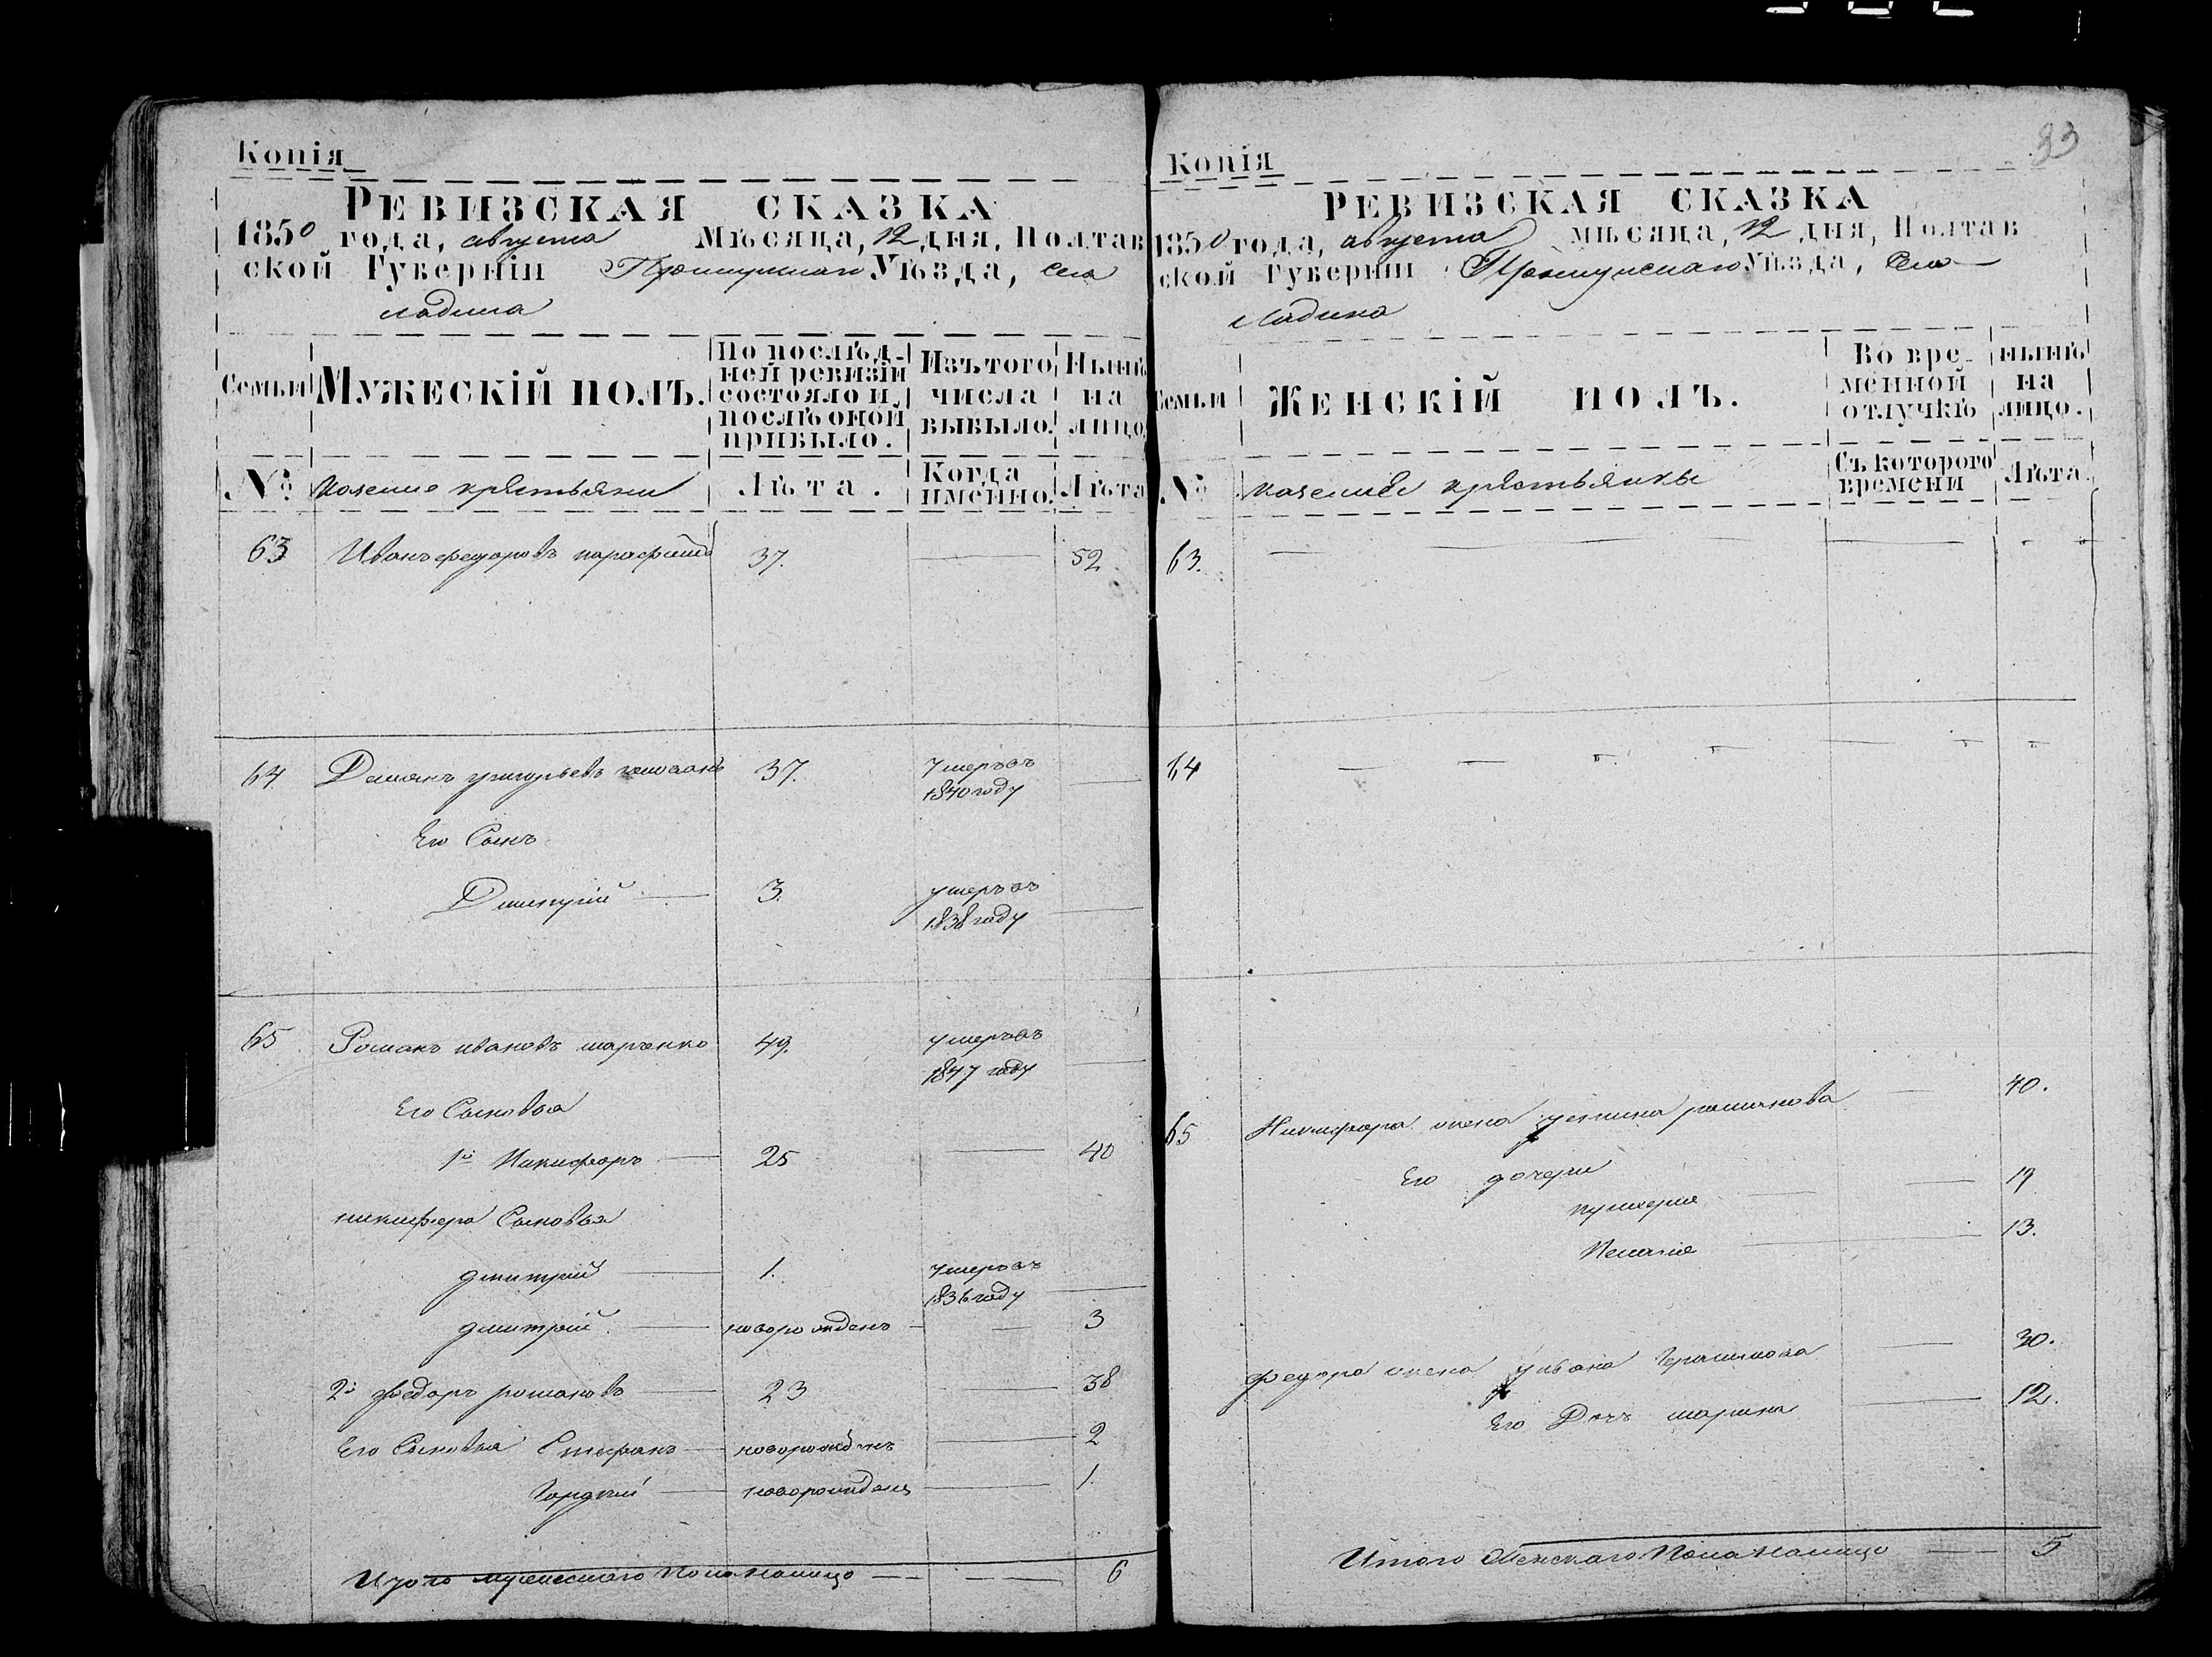 Копія
РЕВИЗСКАЯ СКАЗКА
1850 года, августа Мѣсяца, 12 дня, Полтав
ской Губерніи Прилуцкаго Уѣзда, села
ладина
Семьи
МУЖЕСКІЙ ПОЛЪ.
По послѣд-
ней ревизіи
состояло и
послѣ оной
прибыло.
Изъ того
числа
выбыло.
Нынѣ
на
лицо
№
крестьяни
Лѣта.
Когда
именно.
Лѣта
63 Иванъ федоровъ 37. 52
64 григорьевъ 37. умеръ въ
1840 году
Его Сынъ
Дмитрій 3. умеръ въ
1838 году
65 Романъ ивановъ марченко 49. умеръ въ
1847 году
Его Сыновья
1й Никифоръ 25 40
никифора Сыновья
дмитрій 1. умеръ въ
1836 году
дмитрій новорожденъ 3
2й федоръ романовъ 23 38
Его Сыновья Стефанъ новорожденъ 2
Гордѣй новорожденъ 1
Итого мужескаго Пола налицо 6
83
Копія
РЕВИЗСКАЯ СКАЗКА
1850 года, августа мѣсяца, 12 дня, Полтав
ской Губерніи Прилуцкаго Уѣзда, Села
Ладина
Семьи
ЖЕНСКІЙ ПОЛЪ.
Во вре-
менной
отлучкѣ
нынѣ
на
лицо.
№
крестьянки
Съ которого
времени
Лѣта.
63.
64
65 Никифора жена устина романова 40.
Его дочери 19
пулхерия
Пелагия 13.
федора жена ульяна Герасимова 30.
Его Дочь марина 12.
Итого Женскаго Пола налицо 5